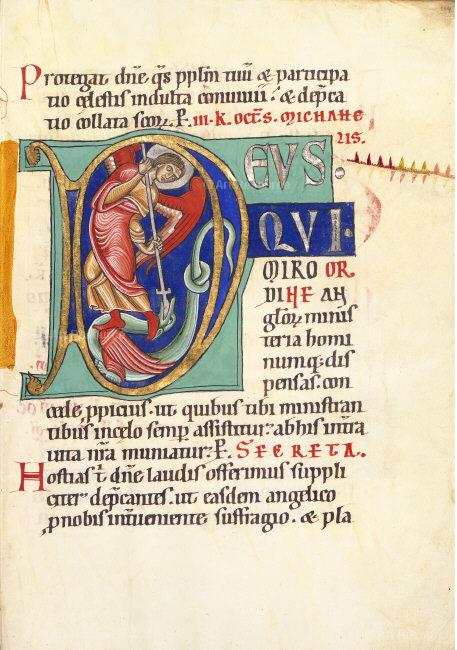 Protegat dn̄e q̄s pplm̄ tuū & participa
tio cęlestis indulta conuiuii. & dep̄ca
tio collata scōꝝ. P. III. K. OCTS. MICHAHE
LIS.
DEUS.
QVI.
MIRO OR
DINE AN
gloꝝ minis
teria homi
numq; dis
pensas. con
cede ppicius. ut quibus tibi ministran
tibus in cęlo semp̄ assistitur. ab his in tr̄a
uita nr̄a muniatur. P. SECRETA.
Hostias t̄ dn̄e laudis offerimus suppli
citer dep̄cantes. ut easdem angelico
p nobis int̄ueniente suffragio. & pla